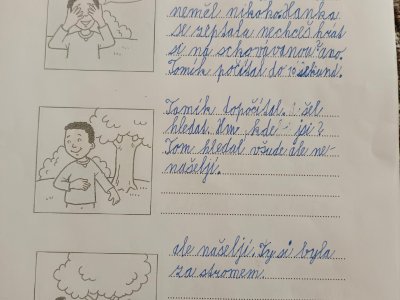 neměl nikoho. Hanka
se zeptala nechceš hrát
si na schovávanou? ano.
Tomík počítal do 10 sekund.
Tomík dopočítal. šel
hledat. Hm kde jsi?
Tom hledal všude ale ne-
našeljí.
ale našeljí. Ty si byla
za stromem